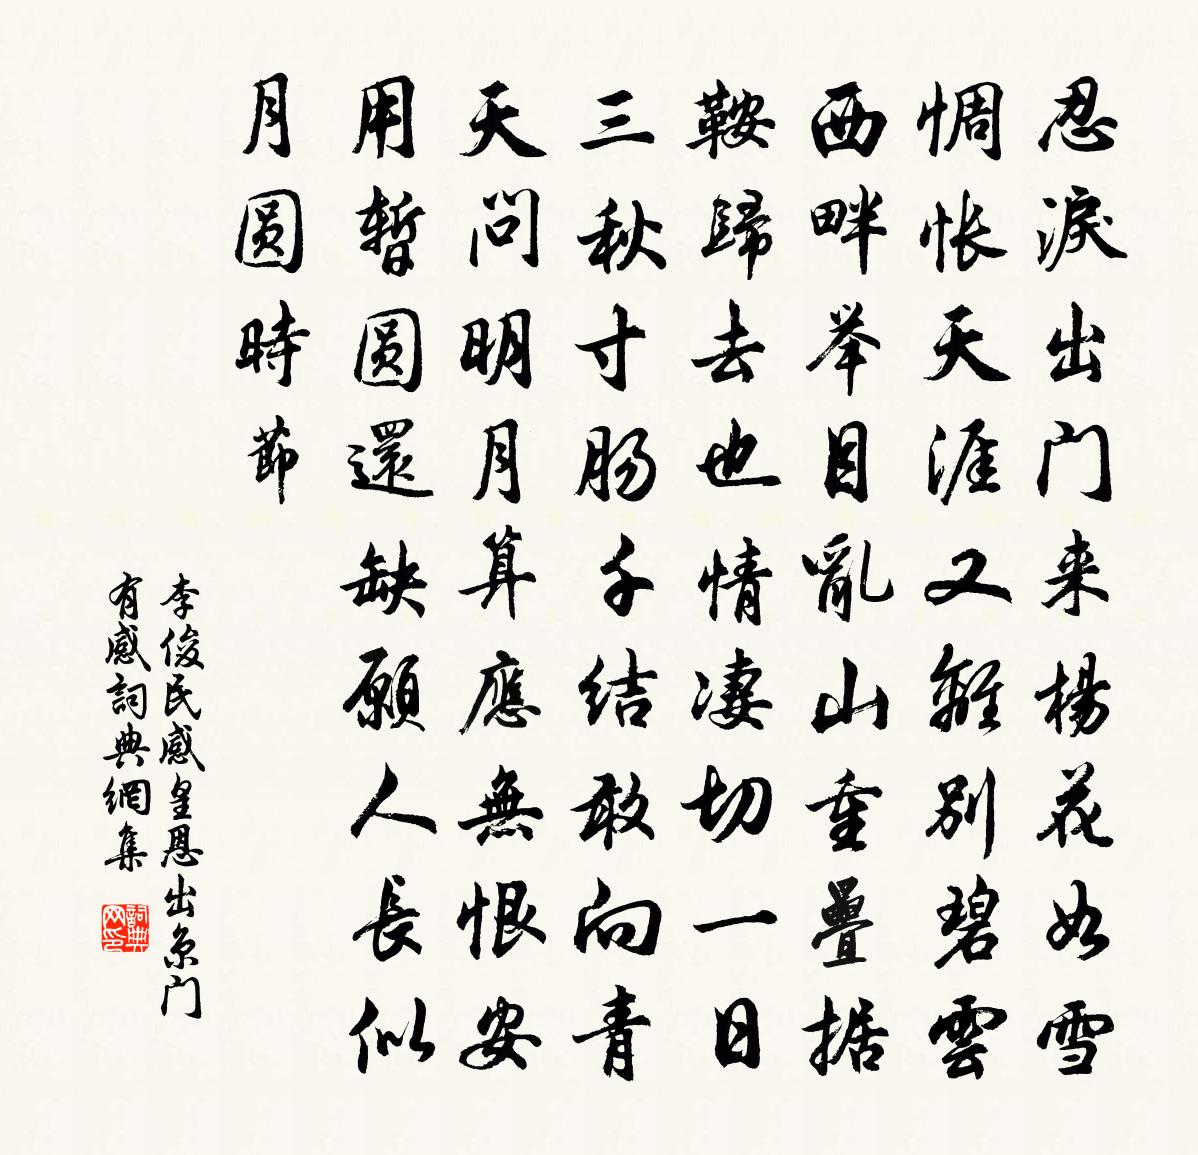 忍淚出门来楊花如雪
惆怅天涯又離別碧雲
西畔举目亂山重疊据
鞍歸去也情凄切一日
三秋寸肠千结敢向青
天問明月算應無恨安
用暫圆還缺願人長似
月圆時節
李俊民感皇恩出京门
有感詞典網集
詞典网印